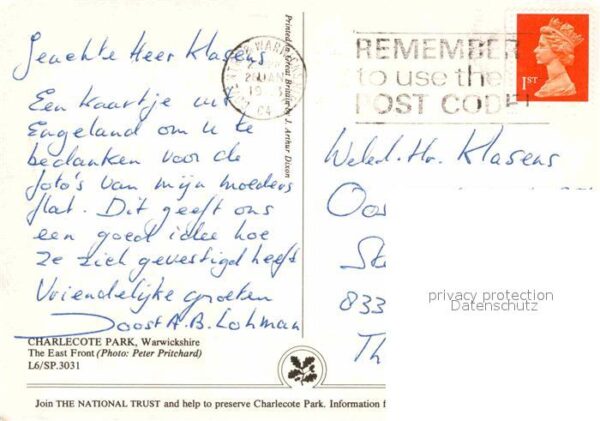 Geachte Heer Klasens
Een kaartje uit
Engeland om u te
bedanken voor de
foto's van mijn moeders
flat. Dit geeft ons
een goed idee hoe
ze zich gevestigd heeft
Vriendelijke groeten
Joost A.B. Lohman
CHARLECOTE PARK, Warwickshire
The East Front (Photo: Peter Pritchard)
L6/SP.3031
Join THE NATIONAL TRUST and help to preserve Charlecote Park. Information f
Printed in Great Britain by J. Arthur Dixon
REMEMBER
to use the
POST CODE!
1ST
Weled. Hr. Klasens
Oos
St
833
Th
privacy protection
Datenschutz